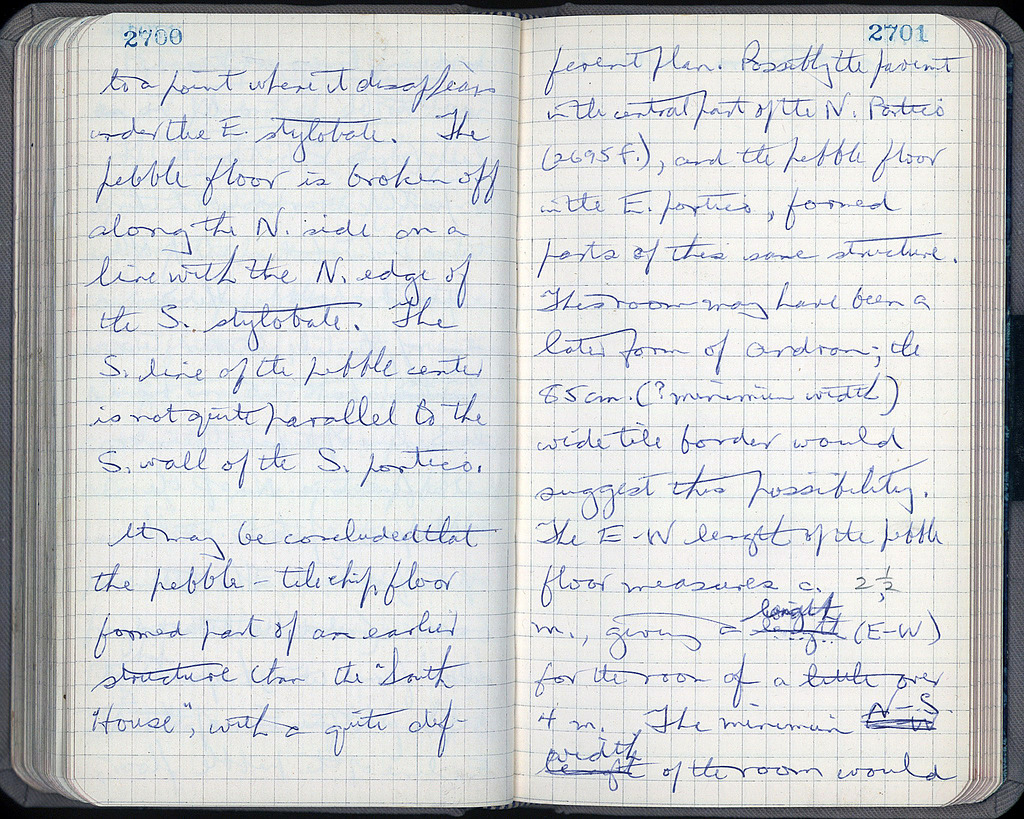 2700
to a point where it disappears
under the E. stylobate. The
pebble floor is broken off
along the N. side on a
line with the N. edge of
the S. stylobate. The
S. line of the pebble center
is not quite parallel to the
S. wall of the S. portico.
It may be concluded that
the pebble - tile chip floor
formed part of an earlier
structure than the "South
House", with a quite dif-
2701
ferent plan. Possibly the pavement
in the central part of the N. Portico
(2695 f.), and the pebble floor
in the E. portico, formed
parts of this same structure.
This room may have been a
later form of andron; the
85 cm. (? minimum width)
wide tile border would
suggest this possibility.
The E-W length of the pebble
floor measures c. 2 ½
m., giving a length (E-W)
for the room of a little over
4 m. The minimum N-S
width of the room would